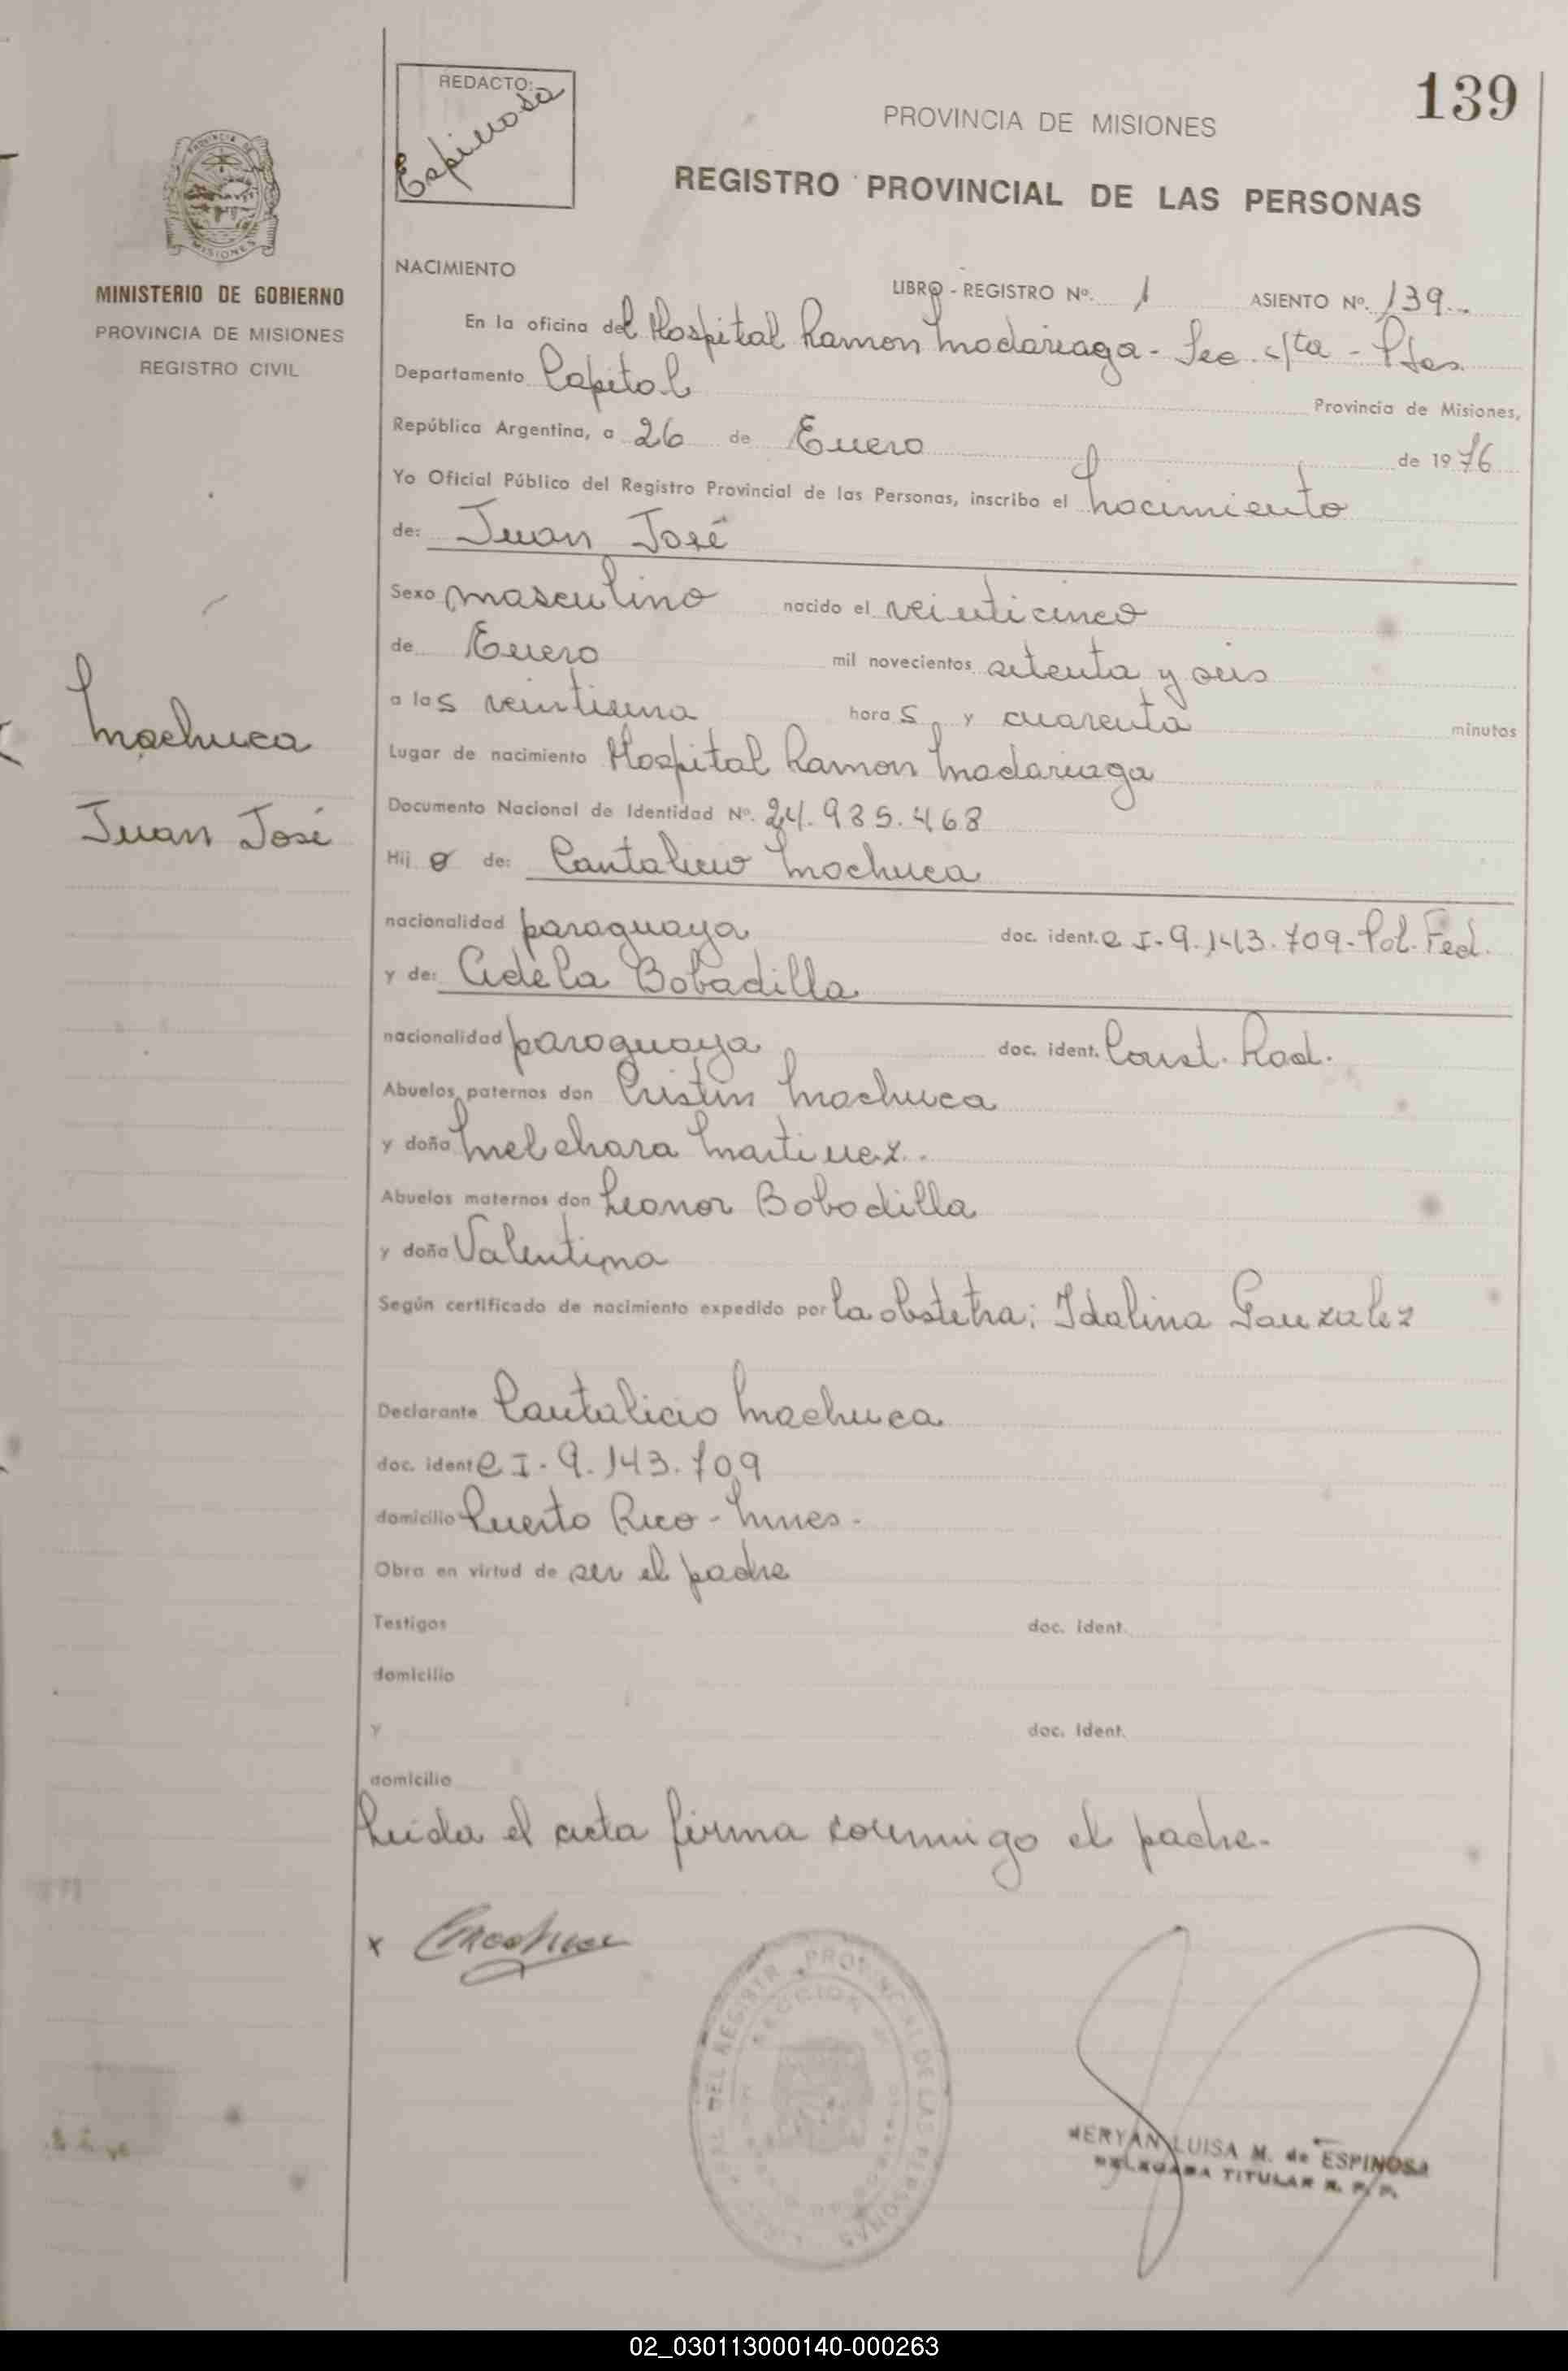 REDACTO:
Espinosa
139
PROVINCIA DE MISIONES
REGISTRO PROVINCIAL DE LAS PERSONAS
PROVINCIA DE
MISIONES
MINISTERIO DE GOBIERNO
PROVINCIA DE MISIONES
REGISTRO CIVIL
NACIMIENTO
LIBRO - REGISTRO Nº. 1 ASIENTO Nº. 139
En la oficina del Hospital Ramon Madariaga - Sec. 4ta - Pdas.
Departamento Capital Provincia de Misiones,
República Argentina, a 26 de Enero de 1976
Yo Oficial Público del Registro Provincial de las Personas, inscribo el Nacimiento
de: Juan José
Sexo masculino nacido el veinticinco
de Enero mil novecientos setenta y seis
a las veintiuna horas y cuarenta minutos
Machuca
Juan José
Lugar de nacimiento Hospital Ramon Madariaga
Documento Nacional de Identidad Nº. 24.985.468
Hijo de: Cantalicio Machuca
nacionalidad paraguaya doc. ident. C I - 9.143.709 - Pol. Fed.
y de: Adela Bobadilla
nacionalidad paraguaya doc. ident. Const. Rad.
Abuelos paternos don Cristin Machuca
y doña Melchora Martinez.
Abuelos maternos don Leonor Bobadilla
y doña Valentina
Según certificado de nacimiento expedido por la obstetra: Idalina Gonzalez
Declarante Cantalicio Machuca
doc. ident C I - 9.143.709
domicilio Puerto Rico - Mnes -
Obra en virtud de ser el padre
Testigos doc. ident.
domicilio
y doc. ident.
domicilio
Leida el acta firma conmigo el padre -
x CMachuca
PROVINCIAL DE LAS PERSONAS
SECCION
MERYAN LUISA M. de ESPINOSA
DELEGADA TITULAR R. P. P.
02_030113000140-000263